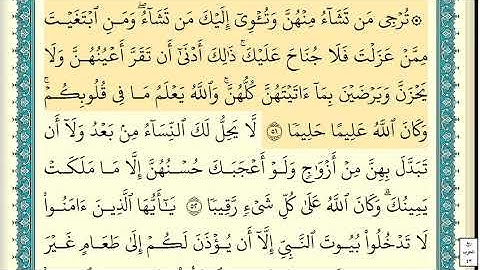 ۞ تُرْجِى مَن تَشَآءُ مِنْهُنَّ وَتُـْٔوِىٓ إِلَيْكَ مَن تَشَآءُۖ وَمَنِ ٱبْتَغَيْتَ
مِمَّنْ عَزَلْتَ فَلَا جُنَاحَ عَلَيْكَۚ ذَٰلِكَ أَدْنَىٰٓ أَن تَقَرَّ أَعْيُنُهُنَّ وَلَا
يَحْزَنَّ وَيَرْضَيْنَ بِمَآ ءَاتَيْتَهُنَّ كُلُّهُنَّۚ وَٱللَّهُ يَعْلَمُ مَا فِى قُلُوبِكُمْۚ
وَكَانَ ٱللَّهُ عَلِيمًا حَلِيمًا ٥١ لَّا يَحِلُّ لَكَ ٱلنِّسَآءُ مِنۢ بَعْدُ وَلَآ أَن
تَبَدَّلَ بِهِنَّ مِنْ أَزْوَٰجٍ وَلَوْ أَعْجَبَكَ حُسْنُهُنَّ إِلَّا مَا مَلَكَتْ
يَمِينُكَۗ وَكَانَ ٱللَّهُ عَلَىٰ كُلِّ شَىْءٍ رَّقِيبًا ٥٢ يَـٰٓأَيُّهَا ٱلَّذِينَ ءَامَنُوا۟
لَا تَدْخُلُوا۟ بُيُوتَ ٱلنَّبِىِّ إِلَّآ أَن يُؤْذَنَ لَكُمْ إِلَىٰ طَعَامٍ غَيْرَ